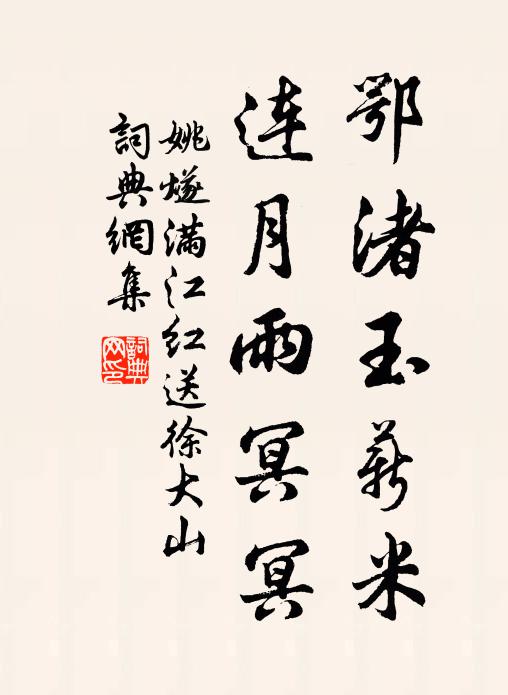 鄂渚玉薪米
连月雨冥冥
姚燧满江红送徐大山
詞典網集
詞典
网印